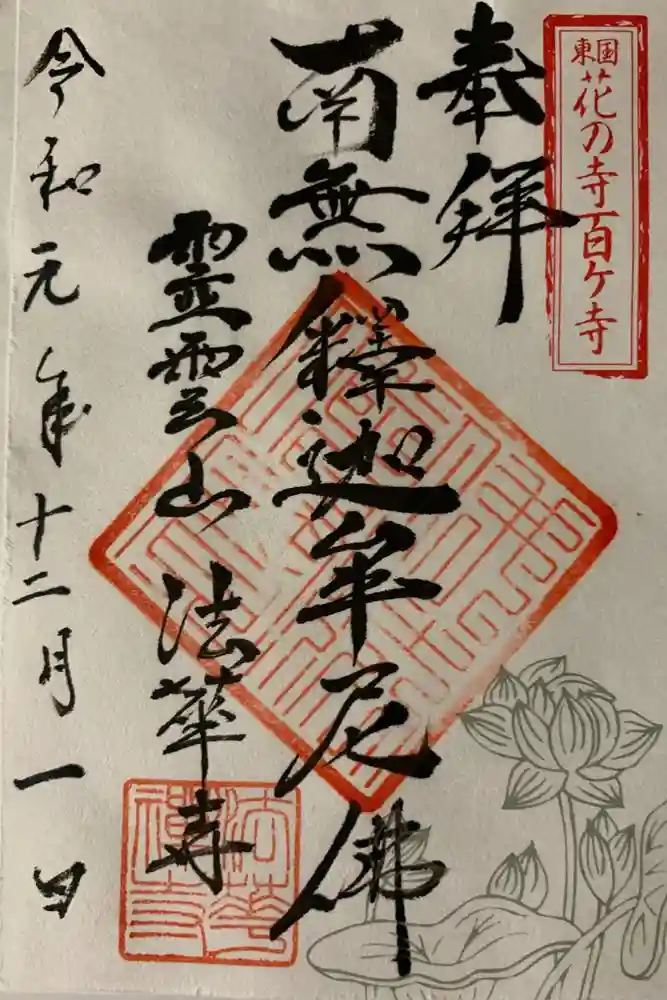 東国
花の寺百ヶ寺
奉拝
南無釋迦牟尼佛
霊雲山 法華寺
令和元年十二月一日
法華
禅寺